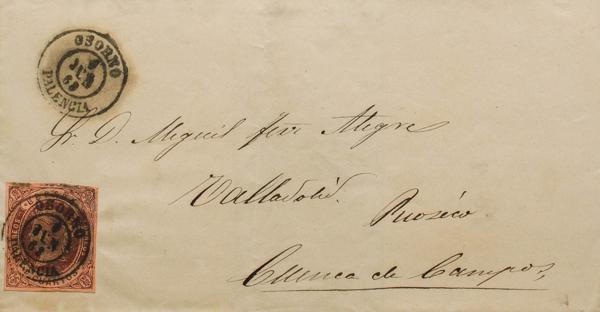 OSORNO
JUN
63
PALENCIA
Sr. D. Miguel Alegre
Valladolid.
Rioseco
Cuenca de Campos,
OSORNO
JUN
63
PALENCIA
CUARTOS